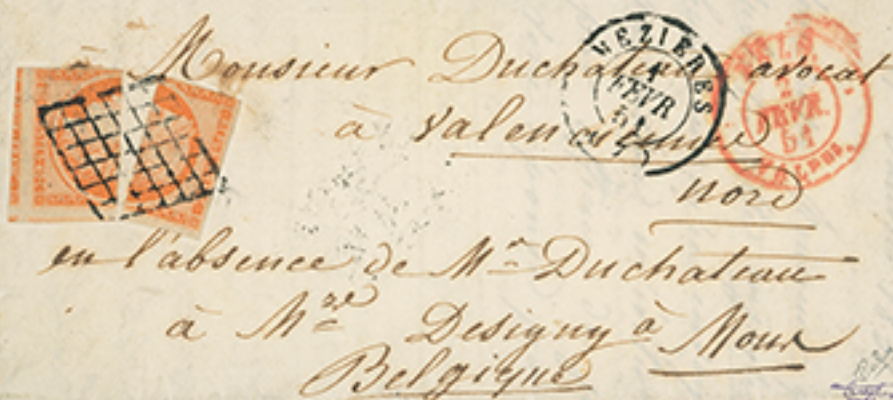 Monsieur Duchateau avocat
à Valenciennes
Nord
en l'absence de Mr Duchateau
à Mme Designy à Mons
Belgique
MEZIERES
1
FEVR
51
FEVR.
51